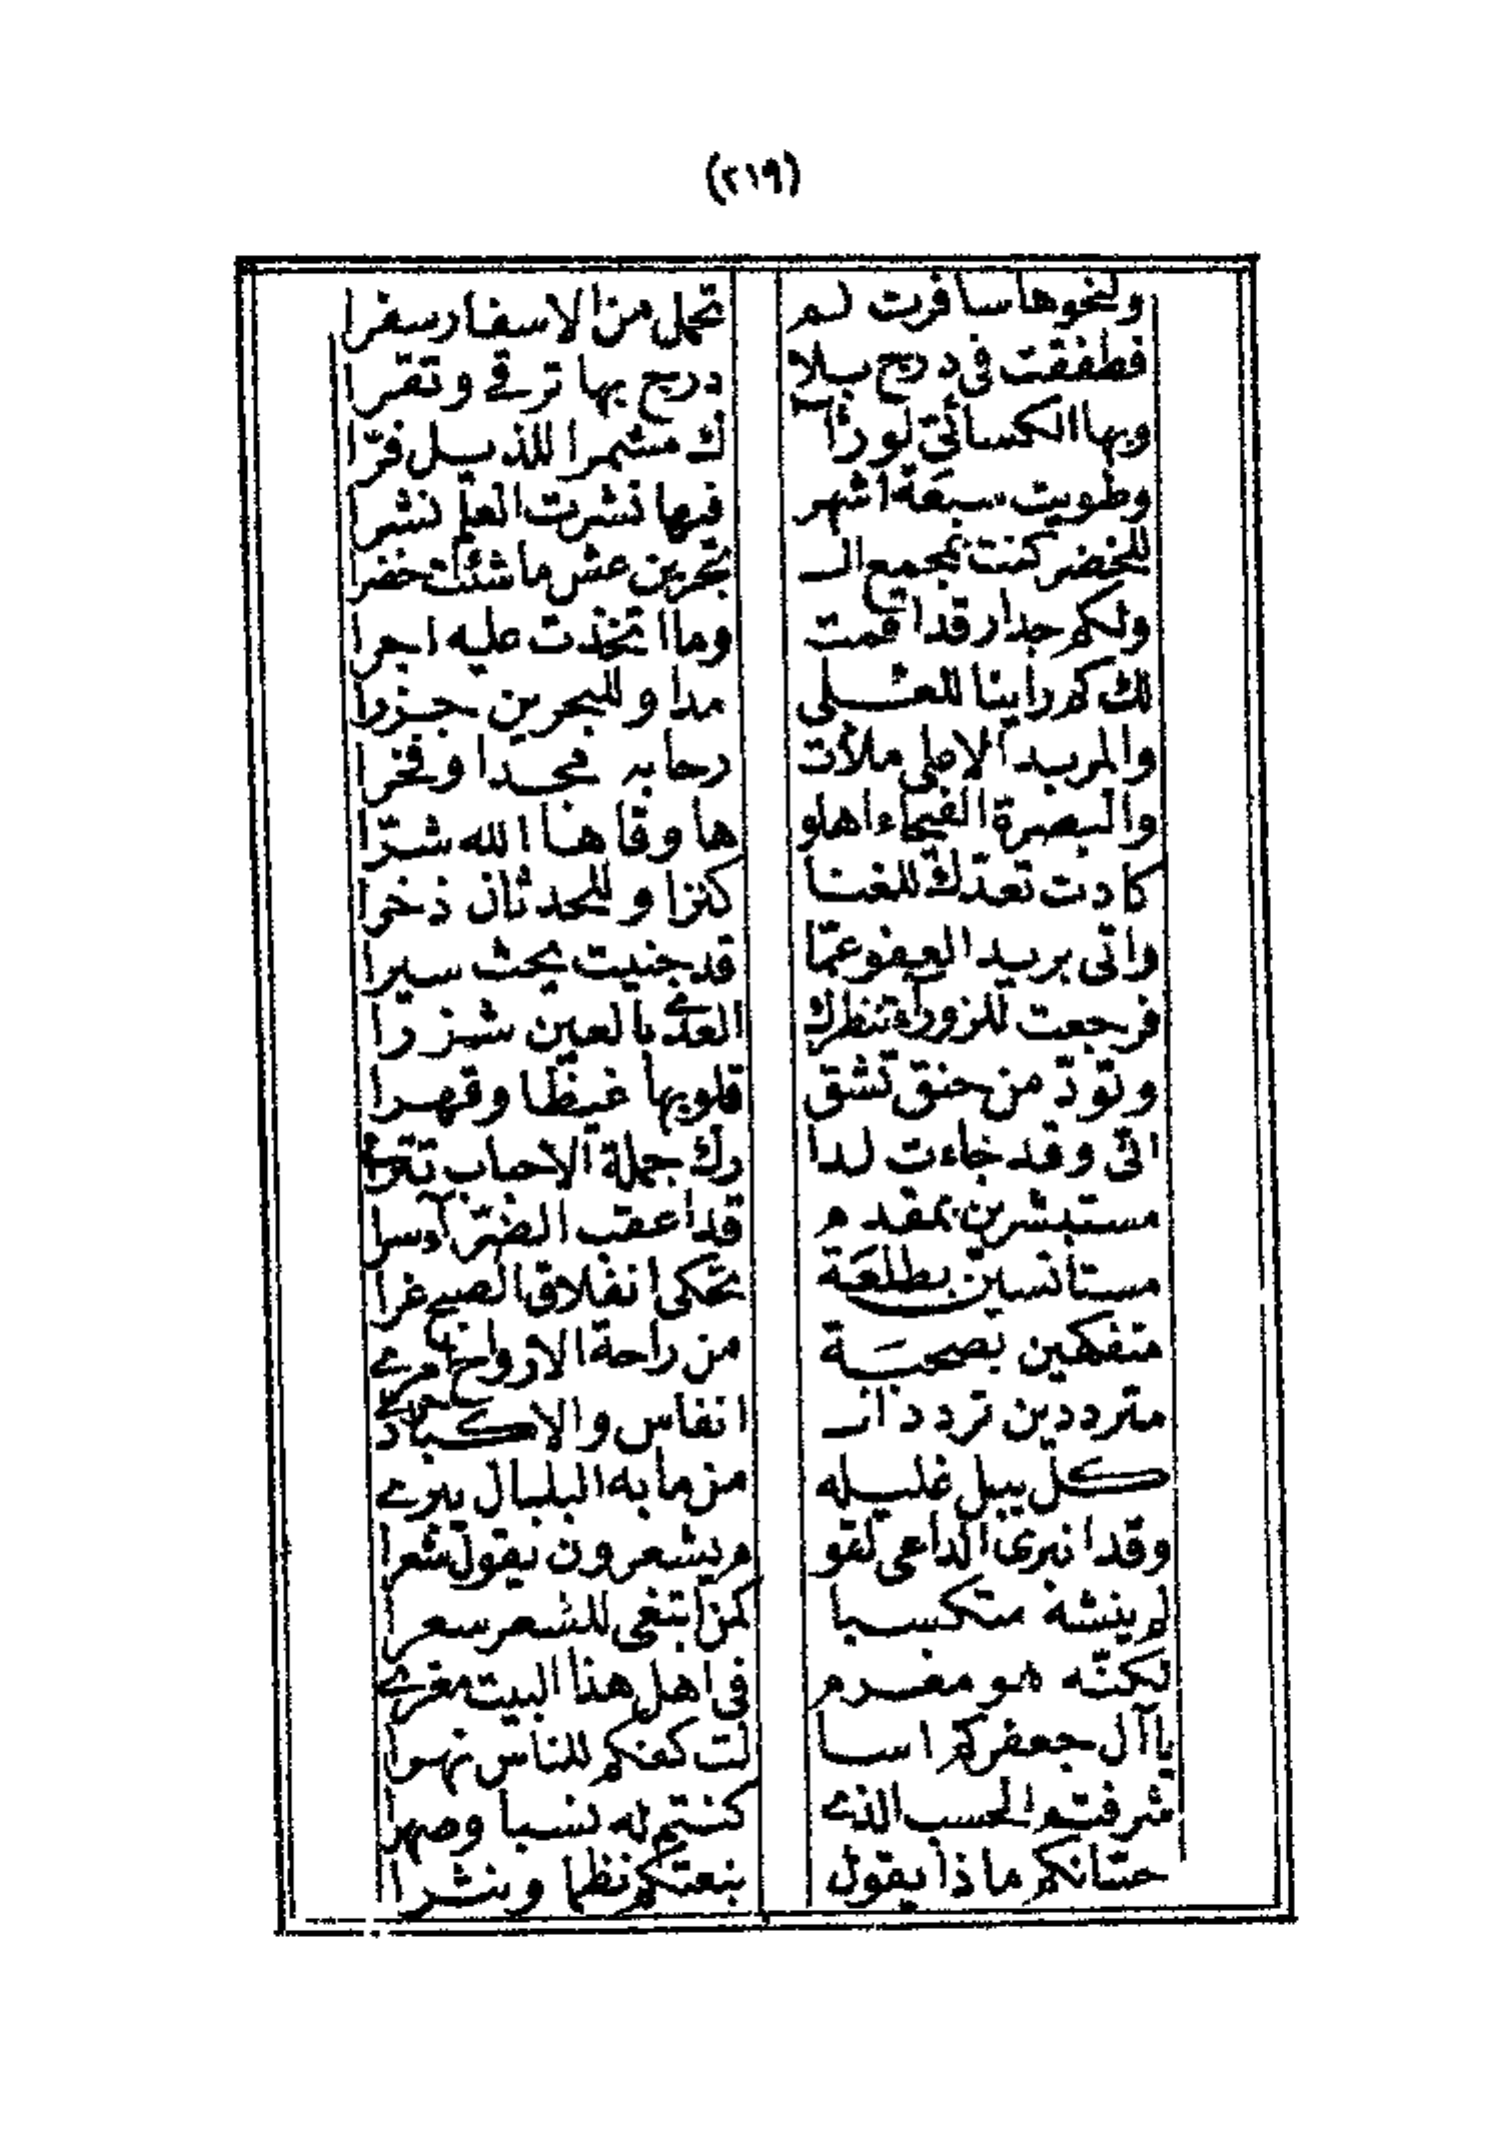 (٢١٩)
ولنحوها سافرت لم تحمل من الاسفار سفرا
فطفقت فى درج بلا درج بها ترقے وتقرا
وبها الكسائىّ لو رآ ك مشمرا للذيل فرّا
وطويت سبعة اشهر فيها نشرت العلم نشرا
للخضر كنت بمجمع الـ بحرين عش ما شئت خضرا
ولكم جدار قد اقمت وما اتخذت عليه اجرا
لك كم راينا للعـلى مدا وللبحرين جزرا
والمربد الاعلى ملأت رحابه مجدا وفخرا
والبصرة الفيحاء اهلو ها وقاها الله شرّا
كادت تعدّك للغنا كنزا وللحدثان ذخرا
واتى بريد العفو عمّا قد جنيت يحث سيرا
فرجعت للزوراء تنظرك العدے بالعين شزرا
وتودّ من حنق تشق قلوبها غيظا وقهرا
انّى وقد جاءت لدا رك جملة الاحباب تترے
مستبشرين بمقدم قد اعقب الضرّآء سرا
مستأنسين بطلعة تحكى انفلاق الصبح غرا
متفكهين بصحبـة من راحة الارواح امرے
مترددين تردد الـ انفاس والاكباد حرے
كلّ يبل غليله من ما به البلبال يبرے
وقد انبرى الداعى لقو م يشعرون يقول شعرا
لم ينشه متكسبا كمن ابتغى للشعر سعرا
لكنّه هو مغرم فى اهل هذا البيت مغرے
يا آل جعفر كم اسا لت كفكم للناس نهرا
شرفتم الحسب الذے كنتم له نسبا وصهرا
حتانكم ماذا يقول بنعتكم نظما ونثرا